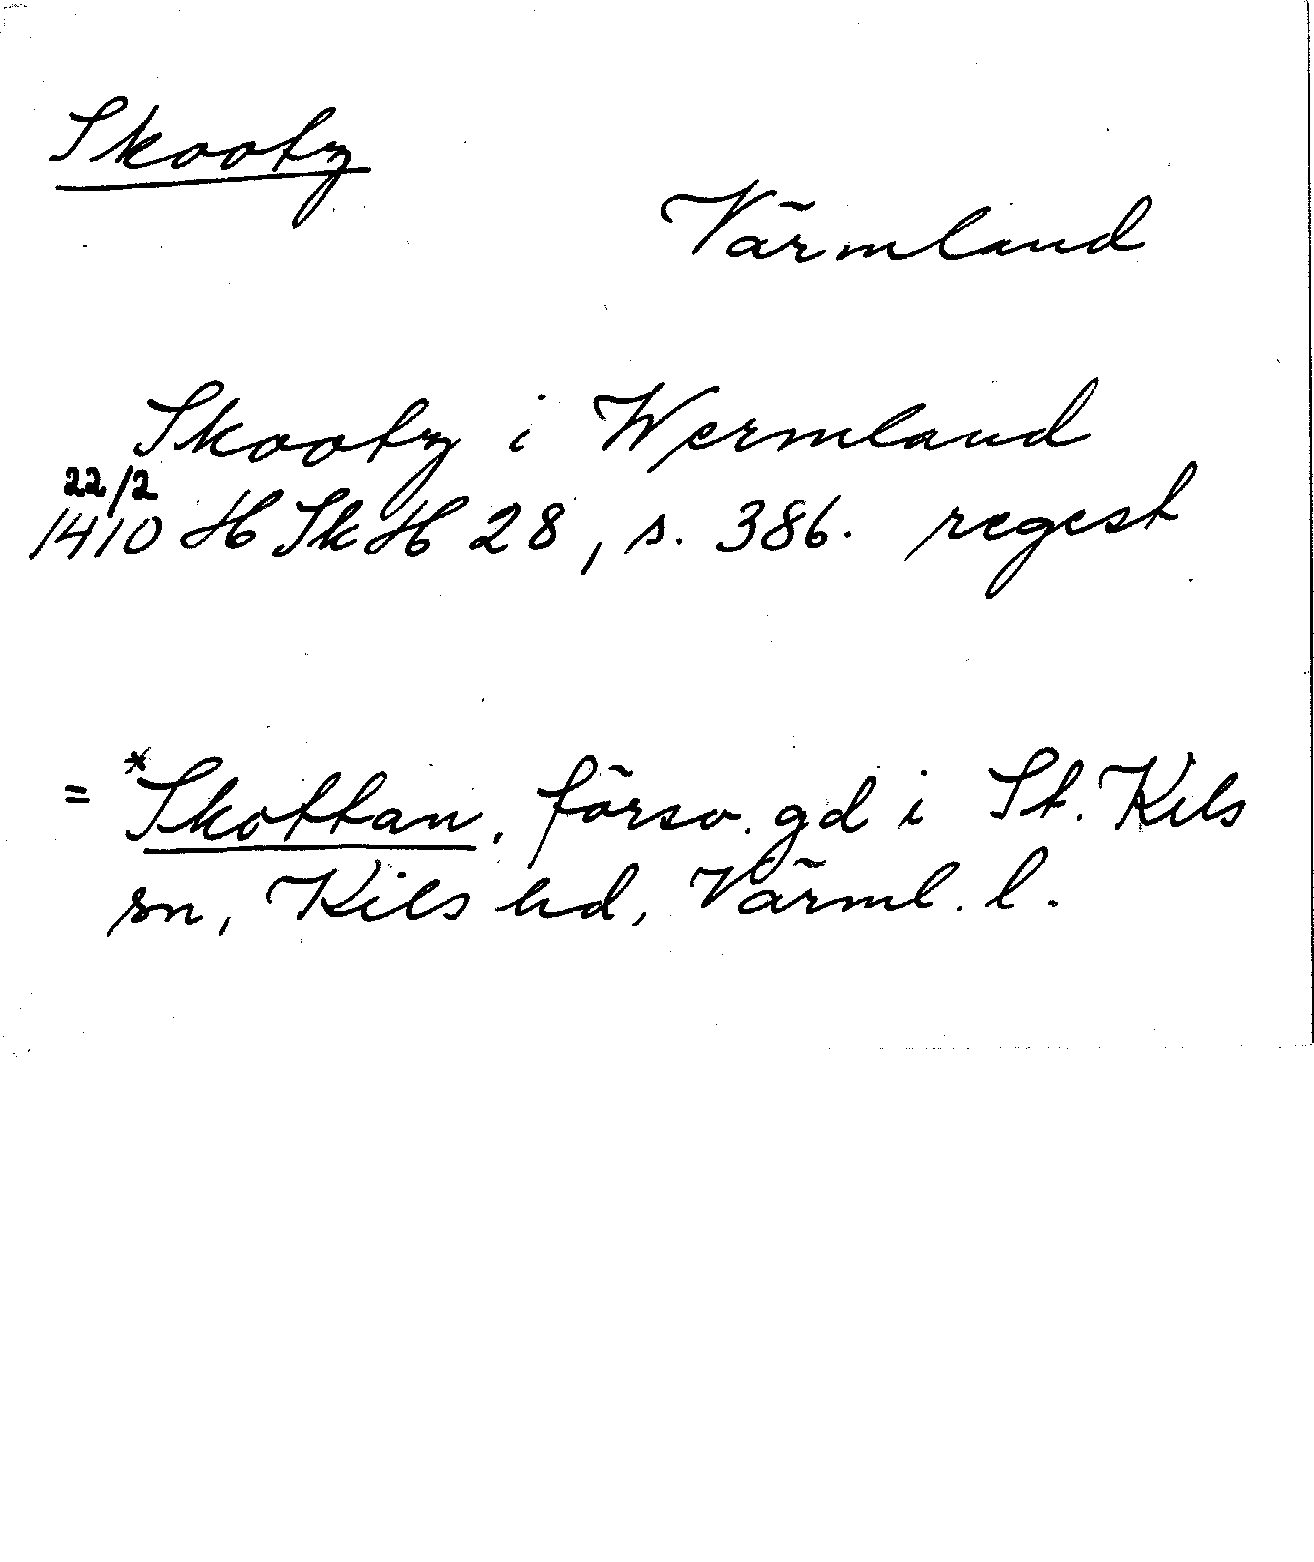 Skootz
Värmland
Skootz i Wermland
22/2
1410 HSkH 28, s. 386. regest
= *Skottan, försv. gd i St. Kils
sn, Kils hd, Värml. l.